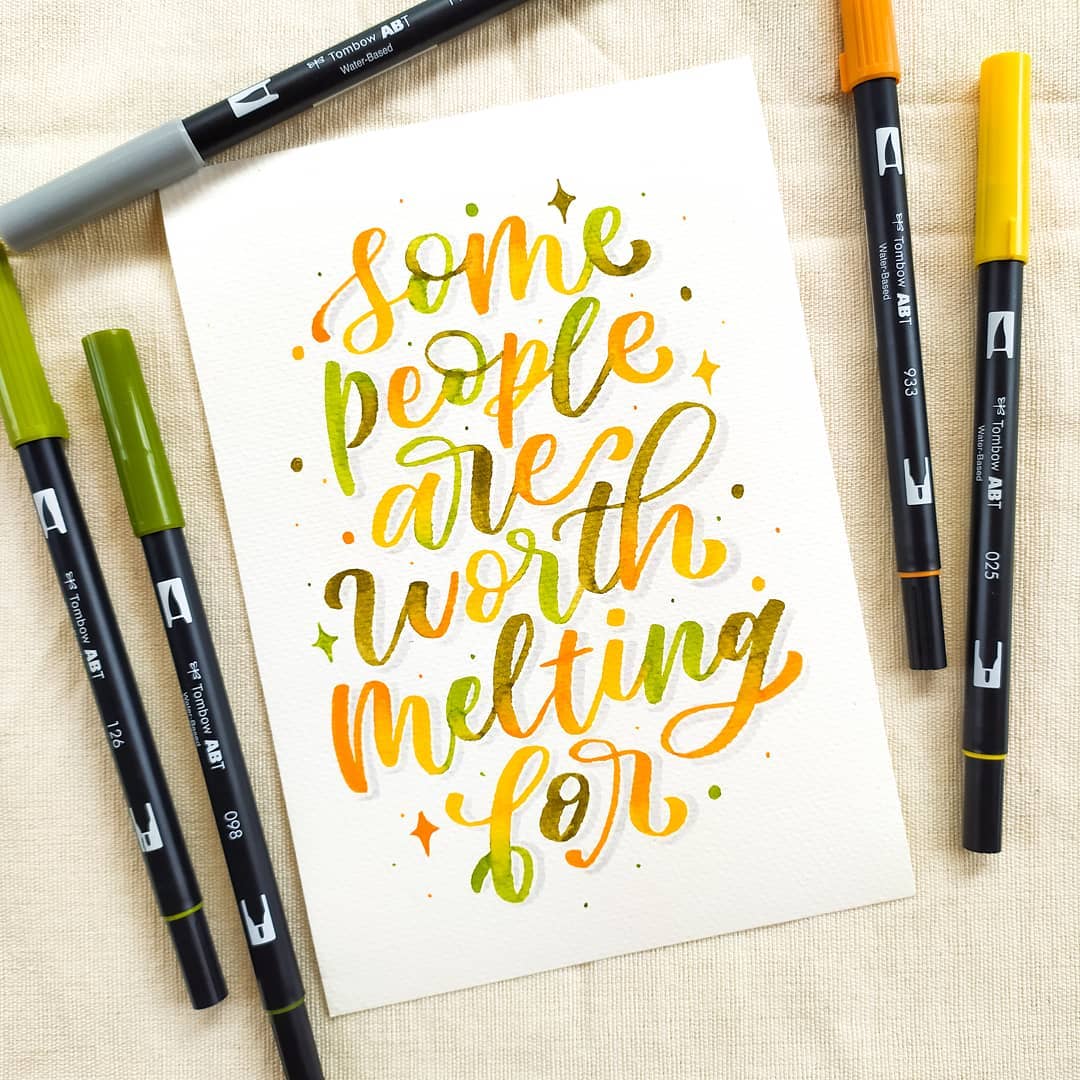 some
people
are
worth
melting
for
Tombow ABT
Water-Based
Tombow ABT
Water-Based
933
Tombow ABT
Water-Based
025
Tombow ABT
126
Tombow ABT
Water-Based
098